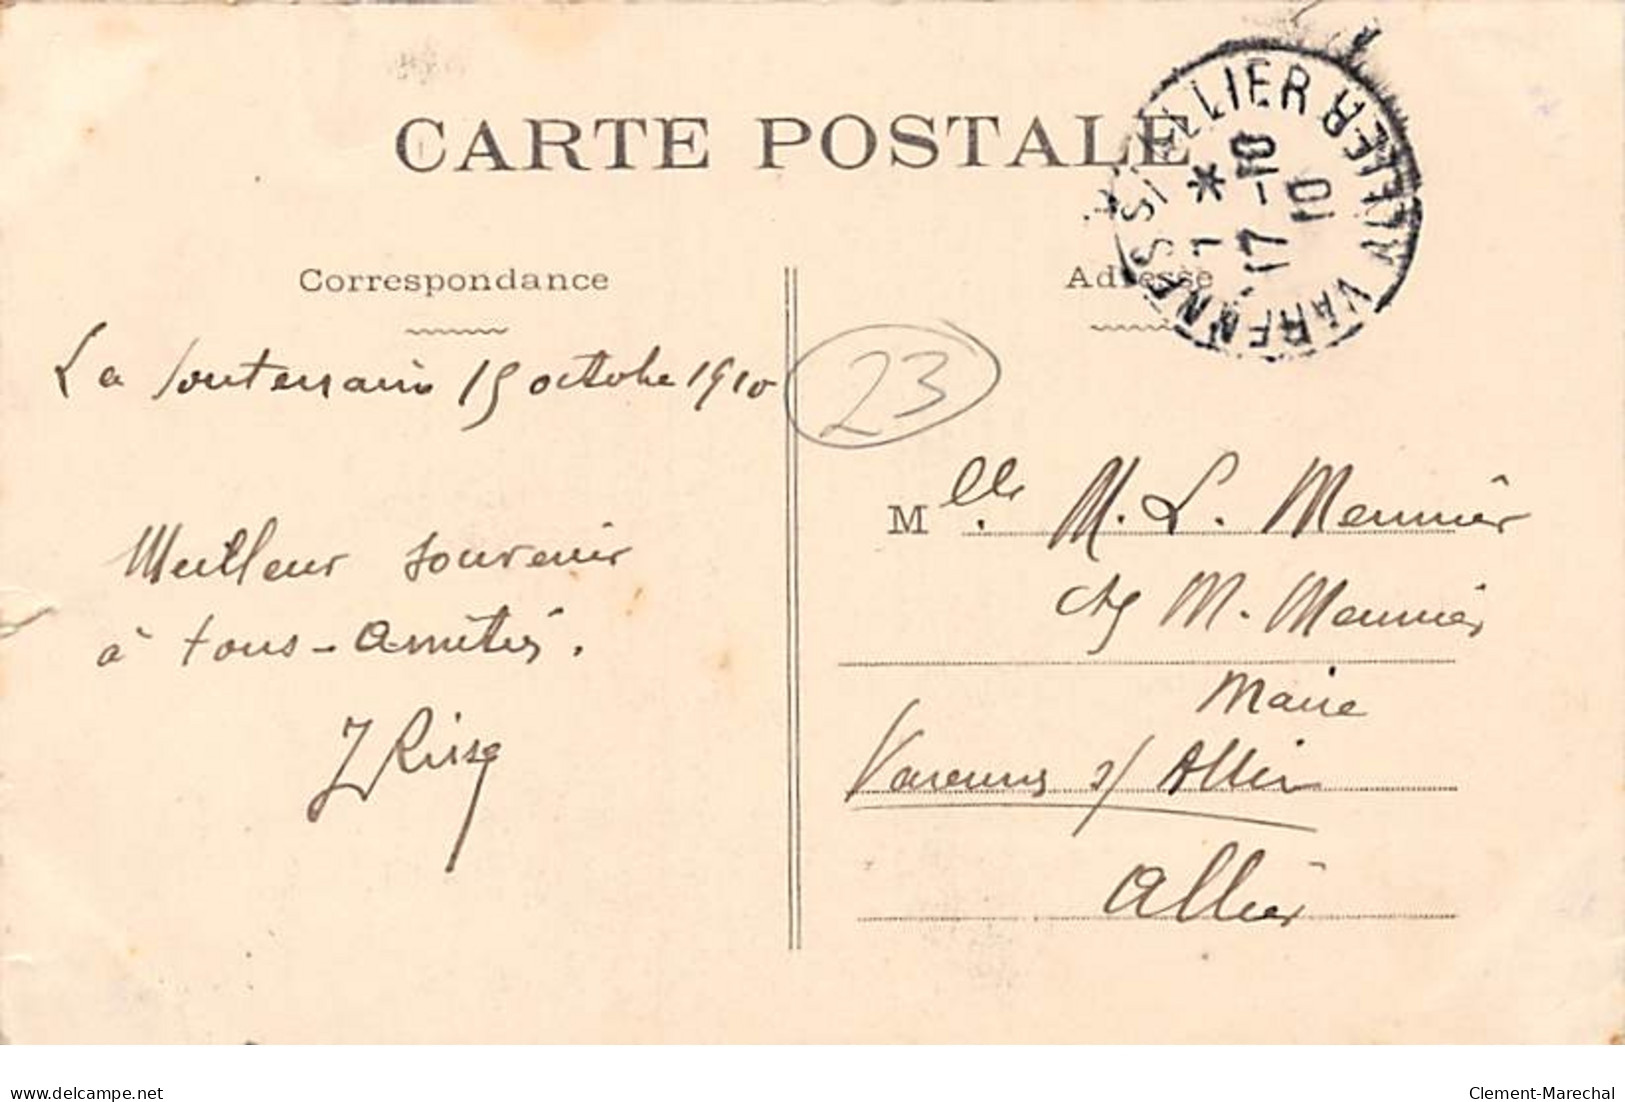 CARTE POSTALE
VARENNES S/ALLIER ALLIER
7 *
17 -10
10
Correspondance
Adresse
La Souterraine 15 octobre 1910
23
Mlle. M. L. Meunier
chez M. Meunier
Maire
Varennes s/ Allier
Allier
Meilleur souvenir
à tous - Amitiés.
delcampe.net
Clement-Marechal